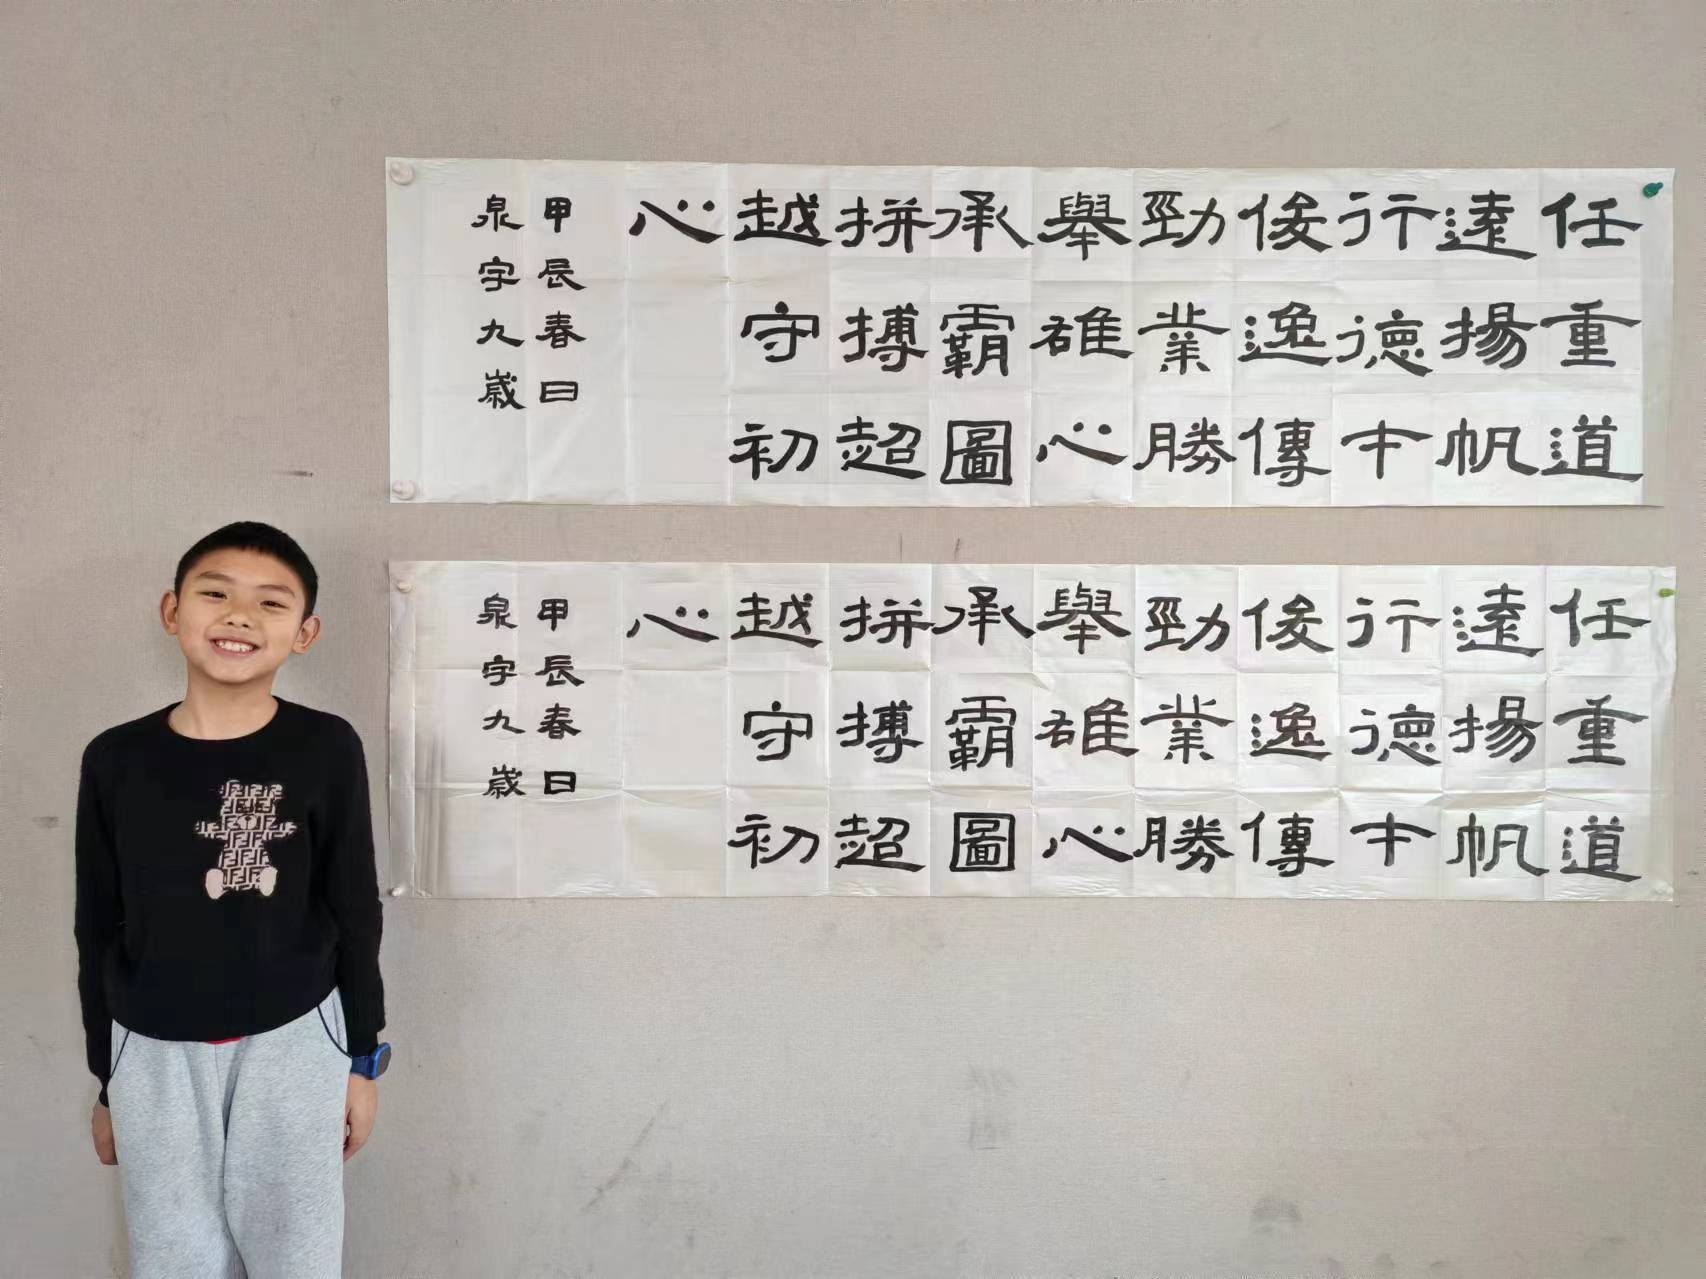 任重道
遠揚帆
行德才
俊逸傳
勁業勝
舉雄心
承霸圖
拼搏超
越守初
心
甲辰春日
泉宇九歲
任重道
遠揚帆
行德才
俊逸傳
勁業勝
舉雄心
承霸圖
拼搏超
越守初
心
甲辰春日
泉宇九歲